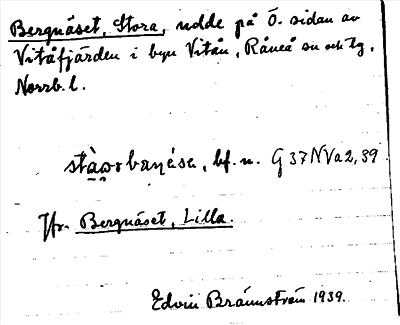 Bergnäset, Stora, udde på Ö. sidan av
Vitåfjärden i byn Vitån, Råneå sn och tg,
Norrb. l.
bf. n. G 37 NVa2,39
Jfr Bergnäset, Lilla.
Edvin Brännström 1939.